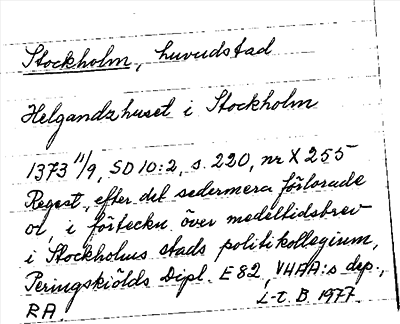 Stockholm, huvudstad
Helgandzhuset i Stockholm
1373 11/9, SD 10:2, s. 220, nr X 255
Regest, efter det sedermera förlorade
or, i förteckn över medeltidsbrev
i Stockholms stads politikollegium,
Peringskiölds Dipl. E 82, VHAA:s dep.,
RA.
L-t. B. 1977.